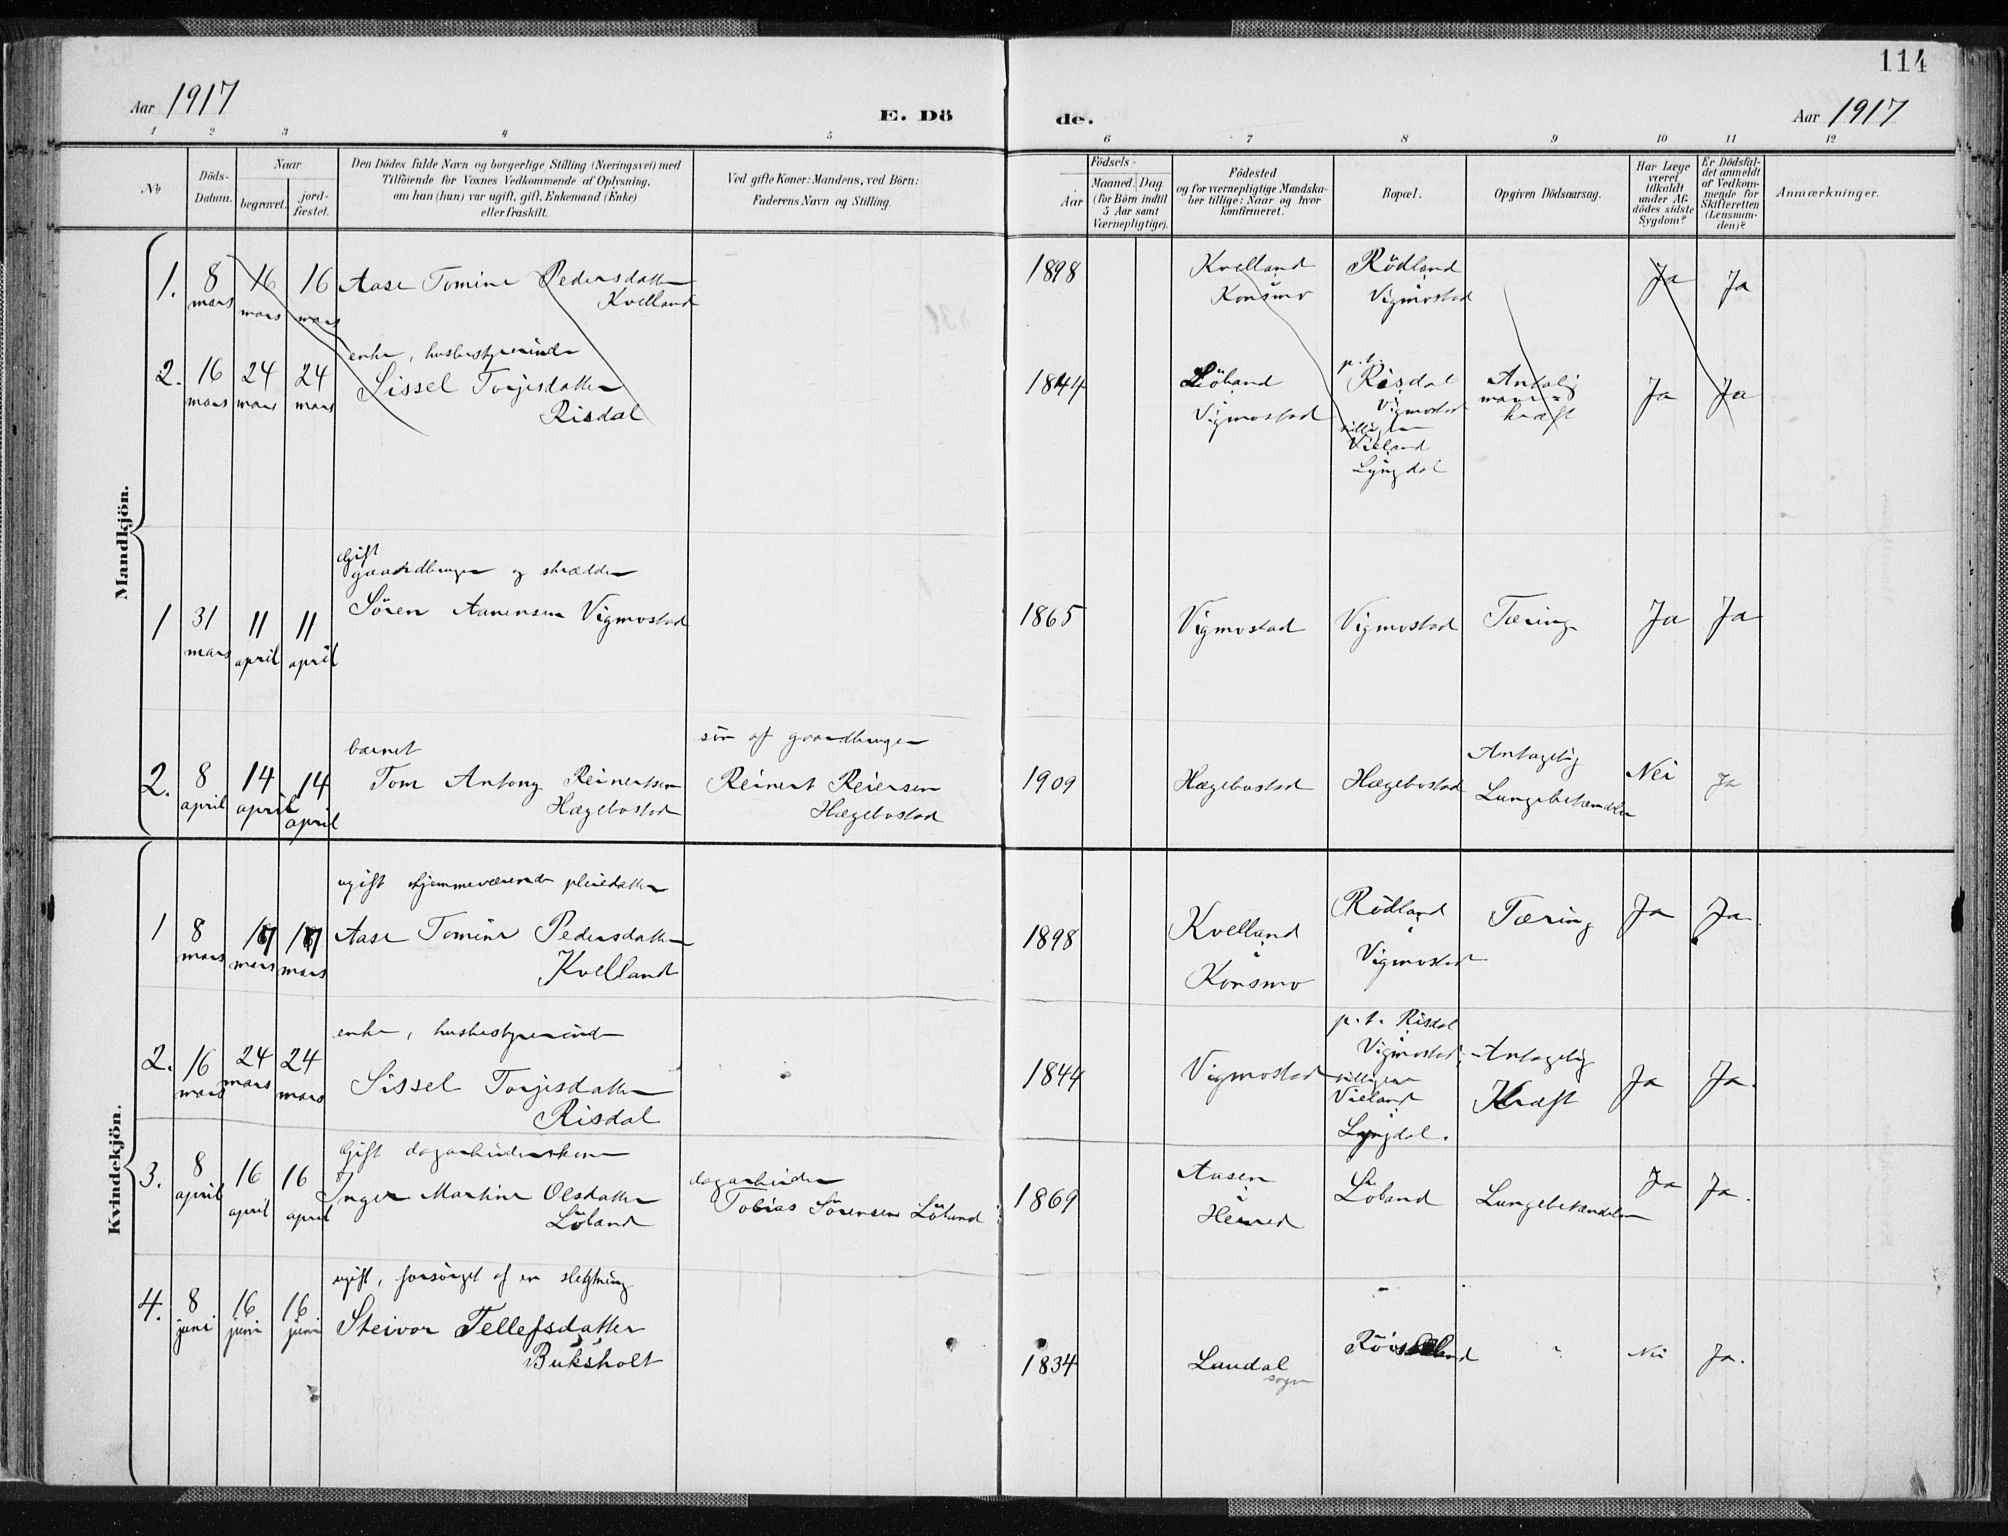 114
Aar 1917
E. Dö
de.
Aar 1917
1 2 3 4 5
6 7 8 9 10 11 12
No
Döds-
Datum.
Naar
begravet.
jord-
fæstet.
Den Dödes fulde Navn og borgerlige Stilling (Næringsvei) med
Tilföiende for Voxnes Vedkommende af Oplysning,
om han (hun) var ugift, gift, Enkemand (Enke)
eller fraskilt.
Ved gifte Koner: Mandens, ved Börn:
Faderens Navn og Stilling.
Födsels-
Aar
Maaned. Dag.
(for Börn indtil
5 Aar samt
Værnepligtige).
Födested
og for værnepligtige Mandska-
ber tillige: Naar og hvor
konfirmeret.
Bopæl.
Opgiven Dödsaarsag.
Har Læge
været
tilkaldt
under Af-
dödes sidste
Sygdom?
Er Dödsfal-
det anmeldt
af Vedkom-
mende for
Skifteretten
(Lensman-
den)?
Anmærkninger.
Mandkjön.
1. 8 mars 16 mars 16 mars
Aase Tomine Pedersdatter
Kvelland
1898
Kvelland
Konsmo
Rödland
Vigmostad
Ja Ja
2. 16 mars 24 mars 24 mars
enke, husbestyrerinde
Sissel Torjesdatter
Risdal
1844
Löland
Vigmostad
p.t.
Risdal
Vigmostad
Vieland
Lyngdal
kræft
Ja Ja
1 31 mars 11 april 11 april
Gift
gaardbruger og skrædder
Sören Aanensen Vigmostad
1865
Vigmostad
Vigmostad
Tæring
Ja Ja
2. 8 april 14 april 14 april
barnet
Tom Antony Reinertsen
Hægebostad
sön af gaardbruger
Reinert Reiersen
Hægebostad
1909
Hægebostad
Hægebostad
Antagelig
Lungebetændelse
Nei Ja
Kvindekjön.
1 8 mars 17 mars 17 mars
ugift hjemmeværende pleiedatter
Aase Tomine Pedersdatter
Kvelland
1898
Kvelland
i
Konsmo
Rödland
i
Vigmostad
Tæring
Ja Ja.
2. 16 mars 24 mars 24 mars
enke, husbestyrerinde
Sissel Torjesdatter
Risdal
1844
Vigmostad
p.t. Risdal
i
Vigmostad,
tilligere
Vieland
i
Lyngdal.
Antagelig
Kræft
Ja Ja.
3. 8 april 16 april 16 april
Gift dagarbeiderskone
Inger Martine Olsdatter
Löland
dagarbeider
Tobias Sörensen Löland
1869
Aasen
i
Herred
Löland
Lungebetændelse
Ja Ja.
4. 8 juni 16 juni 16 juni
ugift, forsörget af en slegtning
Steivor Tellefsdatter
Buksholt
1834
Laudal
sogn
Nei Ja.